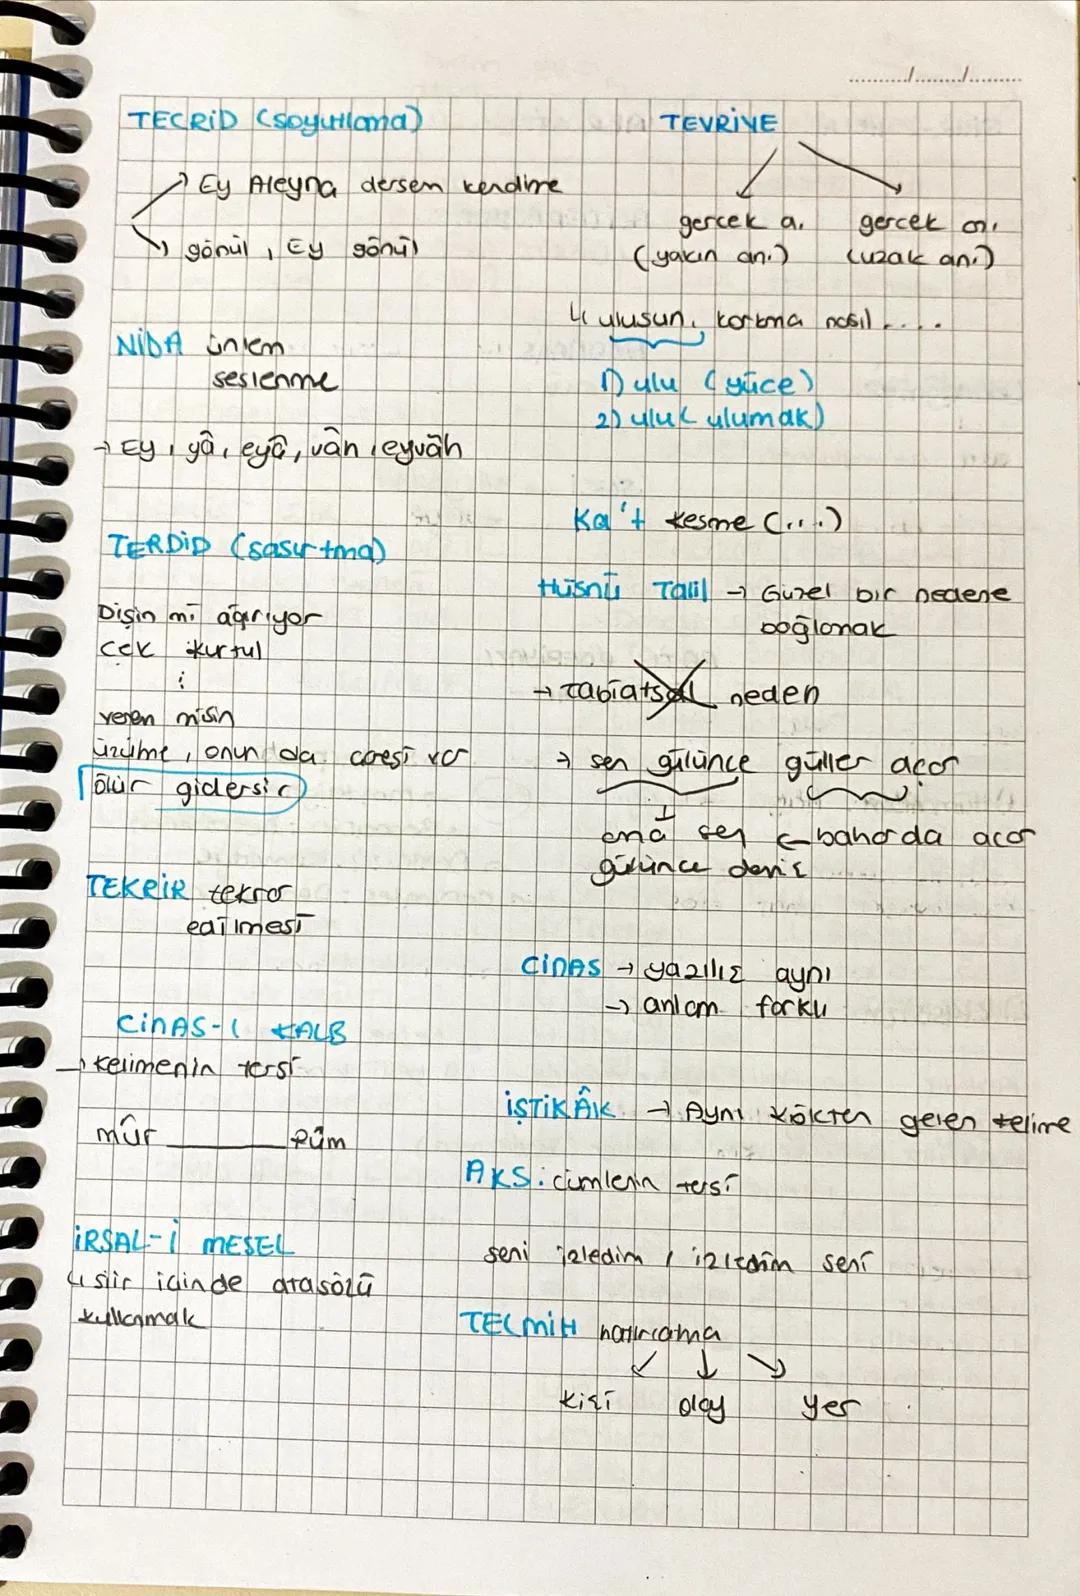 TECRİD (soyutlama)
Ey Aleyna dersem kendime
gönül, Ey gönül
NİDA ünlem
seslenme
→ Ey, yâ, eyâ, vâh, eyvâh
TERDİD (şaşırtma)
Dişin mi ağrıyor
çek kurtul
:
verem misin
üzülme, onun da çaresi var
ölür gidersin
TEKRİR tekrar
edilmesi
CİNAS-I KALB
→ kelimenin tersi
mûr ______ rûm
İRSAL-İ MESEL
↳ şiir içinde atasözü
kullanmak
TEVRİYE
gerçek a. gerçek an.
(yakın an.) (uzak an.)
↳ ulusun, korkma nasıl ....
1) ulu (yüce)
2) ulu( ulumak)
Ka't kesme (....)
Hüsnü Talil → Güzel bir nedene
bağlamak
→ Tabiatsal neden
→ sen gülünce güller açar
ama sen ← baharda açar
gülünce demiş
CİNAS → yazılış aynı
→ anlam farklı
İŞTİKÂK → Aynı kökten gelen kelime
AKS: cümlenin tersi
seni izledim / izledim seni
TELMİH hatırlatma
kişi olay yer